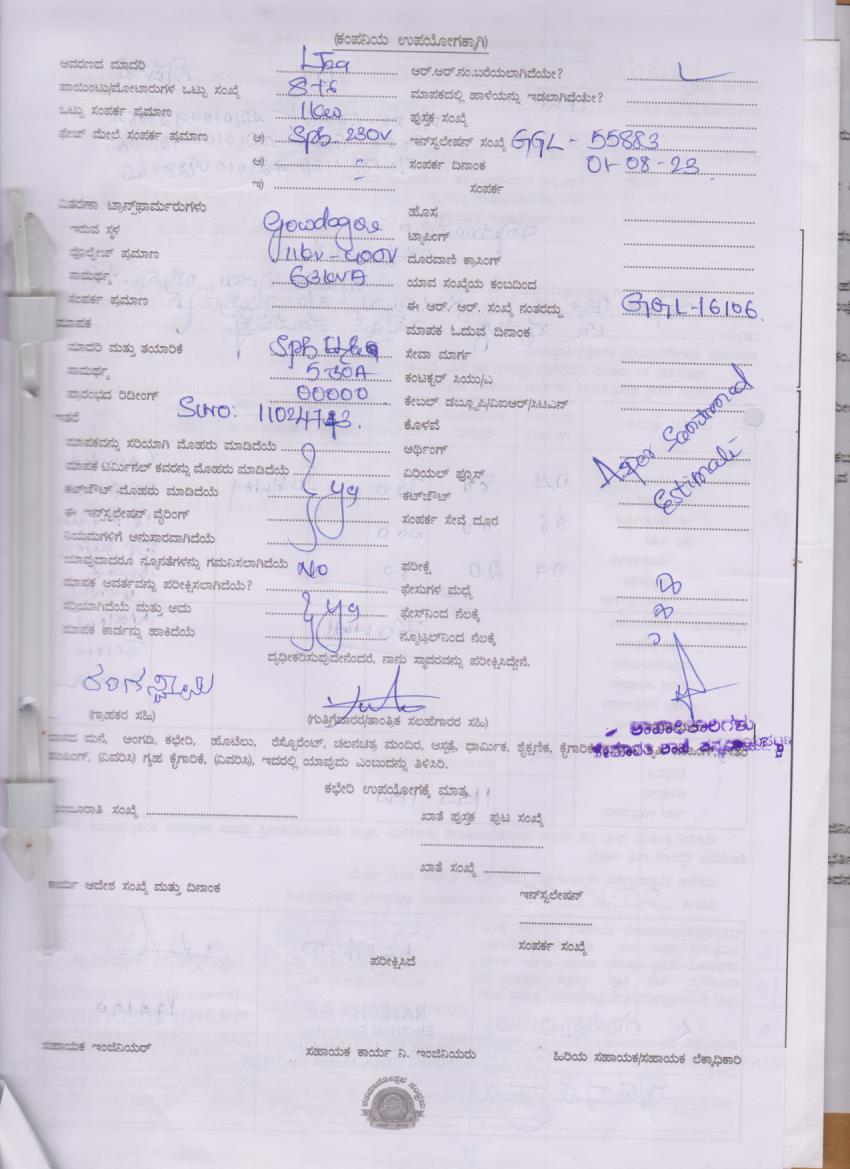 (ಕಂಪನಿಯ ಉಪಯೋಗಕ್ಕಾಗಿ)
ಆವರಣದ ಮಾದರಿ ಆರ್.ಆರ್.ನಂ.ಬರೆಯಲಾಗಿದೆಯೇ?
ಪಾಯಿಂಟು/ಮೋಟಾರುಗಳ ಒಟ್ಟು ಸಂಖ್ಯೆ 8+6 ಮಾಪಕದಲ್ಲಿ ಹಾಳೆಯನ್ನು ಇಡಲಾಗಿದೆಯೇ?
ಒಟ್ಟು ಸಂಪರ್ಕ ಪ್ರಮಾಣ 1kw ಪುಸ್ತಕ ಸಂಖ್ಯೆ
ಫೇಜ್ ಮೇಲೆ ಸಂಪರ್ಕ ಪ್ರಮಾಣ ಅ) Sph 230V ಇನ್‌ಸ್ಟಲೇಷನ್ ಸಂಖ್ಯೆ GGL - 55883
ಆ) ಸಂಪರ್ಕ ದಿನಾಂಕ 01-08-23
ಇ) ಸಂಪರ್ಕ
ವಿತರಣಾ ಟ್ರಾನ್ಸ್‌ಫಾರ್ಮರುಗಳು ಹೊಸ
ಇರುವ ಸ್ಥಳ Gowdagere ಟ್ಯಾಪಿಂಗ್
ವೋಲ್ಟೇಜ್ ಪ್ರಮಾಣ 11kv - 400V ದೂರವಾಣಿ ಕ್ರಾಸಿಂಗ್
ಸಾಮರ್ಥ್ಯ 63kVA ಯಾವ ಸಂಖ್ಯೆಯ ಕಂಬದಿಂದ
ಸಂಪರ್ಕ ಪ್ರಮಾಣ ಈ ಆರ್. ಆರ್. ಸಂಖ್ಯೆ ನಂತರದ್ದು GGL-16106.
ಮಾಪಕ ಮಾಪಕ ಓದುವ ದಿನಾಂಕ
ಮಾದರಿ ಮತ್ತು ತಯಾರಿಕೆ Sph ಸೇವಾ ಮಾರ್ಗ
ಸಾಮರ್ಥ್ಯ 5-30A ಕಂಟಕ್ಟರ್ ಸಿಯು/ಎ
ಪ್ರಾರಂಭದ ರಿಡೀಂಗ್ 00000 ಕೇಬಲ್ ಡಬ್ಲ್ಯೂಪಿ/ವಿಐಆರ್/ಸಿಟಿಎನ್
ಇತರೆ Sl.No: ಕೊಳವೆ
ಮಾಪಕವನ್ನು ಸರಿಯಾಗಿ ಮೊಹರು ಮಾಡಿದೆಯೆ ಅರ್ಥಿಂಗ್
ಮಾಪಕ ಟರ್ಮಿನಲ್ ಕವರನ್ನು ಮೊಹರು ಮಾಡಿದೆಯೆ ಏರಿಯಲ್ ಫ್ಯೂಸ್
ಕಟ್‌ಔಟ್ ಮೊಹರು ಮಾಡಿದೆಯೆ ಕಟ್‌ಔಟ್
ಈ ಇನ್‌ಸ್ಟಲೇಷನ್ ವೈರಿಂಗ್ ಸಂಪರ್ಕ ಸೇವೆ ದೂರ
As per Sanctioned
Estimate
ನಿಯಮಗಳಿಗೆ ಅನುಸಾರವಾಗಿದೆಯೆ
ಯಾವುದಾದರೂ ನ್ಯೂನತೆಗಳನ್ನು ಗಮನಿಸಲಾಗಿದೆಯೆ No ಪರೀಕ್ಷೆ
ಮಾಪಕ ಆವರ್ತವನ್ನು ಪರೀಕ್ಷಿಸಲಾಗಿದೆಯೆ? ಫೇಸುಗಳ ಮಧ್ಯೆ
ಸರಿಯಾಗಿದೆಯೆ ಮತ್ತು ಅದು ಫೇಸ್‌ನಿಂದ ನೆಲಕ್ಕೆ
ಮಾಪಕ ಕಾರ್ಡನ್ನು ಹಾಕಿದೆಯೆ ನ್ಯೂಟ್ರಲ್‌ನಿಂದ ನೆಲಕ್ಕೆ
ದೃಢೀಕರಿಸುವುದೇನೆಂದರೆ, ನಾನು ಸ್ಥಾವರವನ್ನು ಪರೀಕ್ಷಿಸಿದ್ದೇನೆ.
ರಂಗಸ್ವಾಮಿ
(ಗ್ರಾಹಕರ ಸಹಿ) (ಗುತ್ತಿಗೆದಾರರ/ತಾಂತ್ರಿಕ ಸಲಹೆಗಾರರ ಸಹಿ)
ವಾಸದ ಮನೆ, ಅಂಗಡಿ, ಕಛೇರಿ, ಹೊಟೆಲು, ರೆಸ್ಟೋರೆಂಟ್, ಚಲನಚಿತ್ರ ಮಂದಿರ, ಆಸ್ಪತ್ರೆ, ಧಾರ್ಮಿಕ, ಶೈಕ್ಷಣಿಕ, ಕೈಗಾರಿಕೆ
ಪಂಪಿಂಗ್, (ವಿವರಿಸಿ) ಗೃಹ ಕೈಗಾರಿಕೆ, (ವಿವರಿಸಿ), ಇದರಲ್ಲಿ ಯಾವುದು ಎಂಬುದನ್ನು ತಿಳಿಸಿರಿ.
ಕಛೇರಿ ಉಪಯೋಗಕ್ಕೆ ಮಾತ್ರ
ಮಂಜೂರಾತಿ ಸಂಖ್ಯೆ ಖಾತೆ ಪುಸ್ತಕ ಪುಟ ಸಂಖ್ಯೆ
ಖಾತೆ ಸಂಖ್ಯೆ
ಕಾರ್ಯ ಆದೇಶ ಸಂಖ್ಯೆ ಮತ್ತು ದಿನಾಂಕ ಇನ್‌ಸ್ಟಲೇಷನ್
ಸಂಪರ್ಕ ಸಂಖ್ಯೆ
ಪರೀಕ್ಷಿಸಿದೆ
ಸಹಾಯಕ ಇಂಜಿನಿಯರ್ ಸಹಾಯಕ ಕಾರ್ಯ ನಿ. ಇಂಜಿನಿಯರು ಹಿರಿಯ ಸಹಾಯಕ/ಸಹಾಯಕ ಲೆಕ್ಕಾಧಿಕಾರಿ